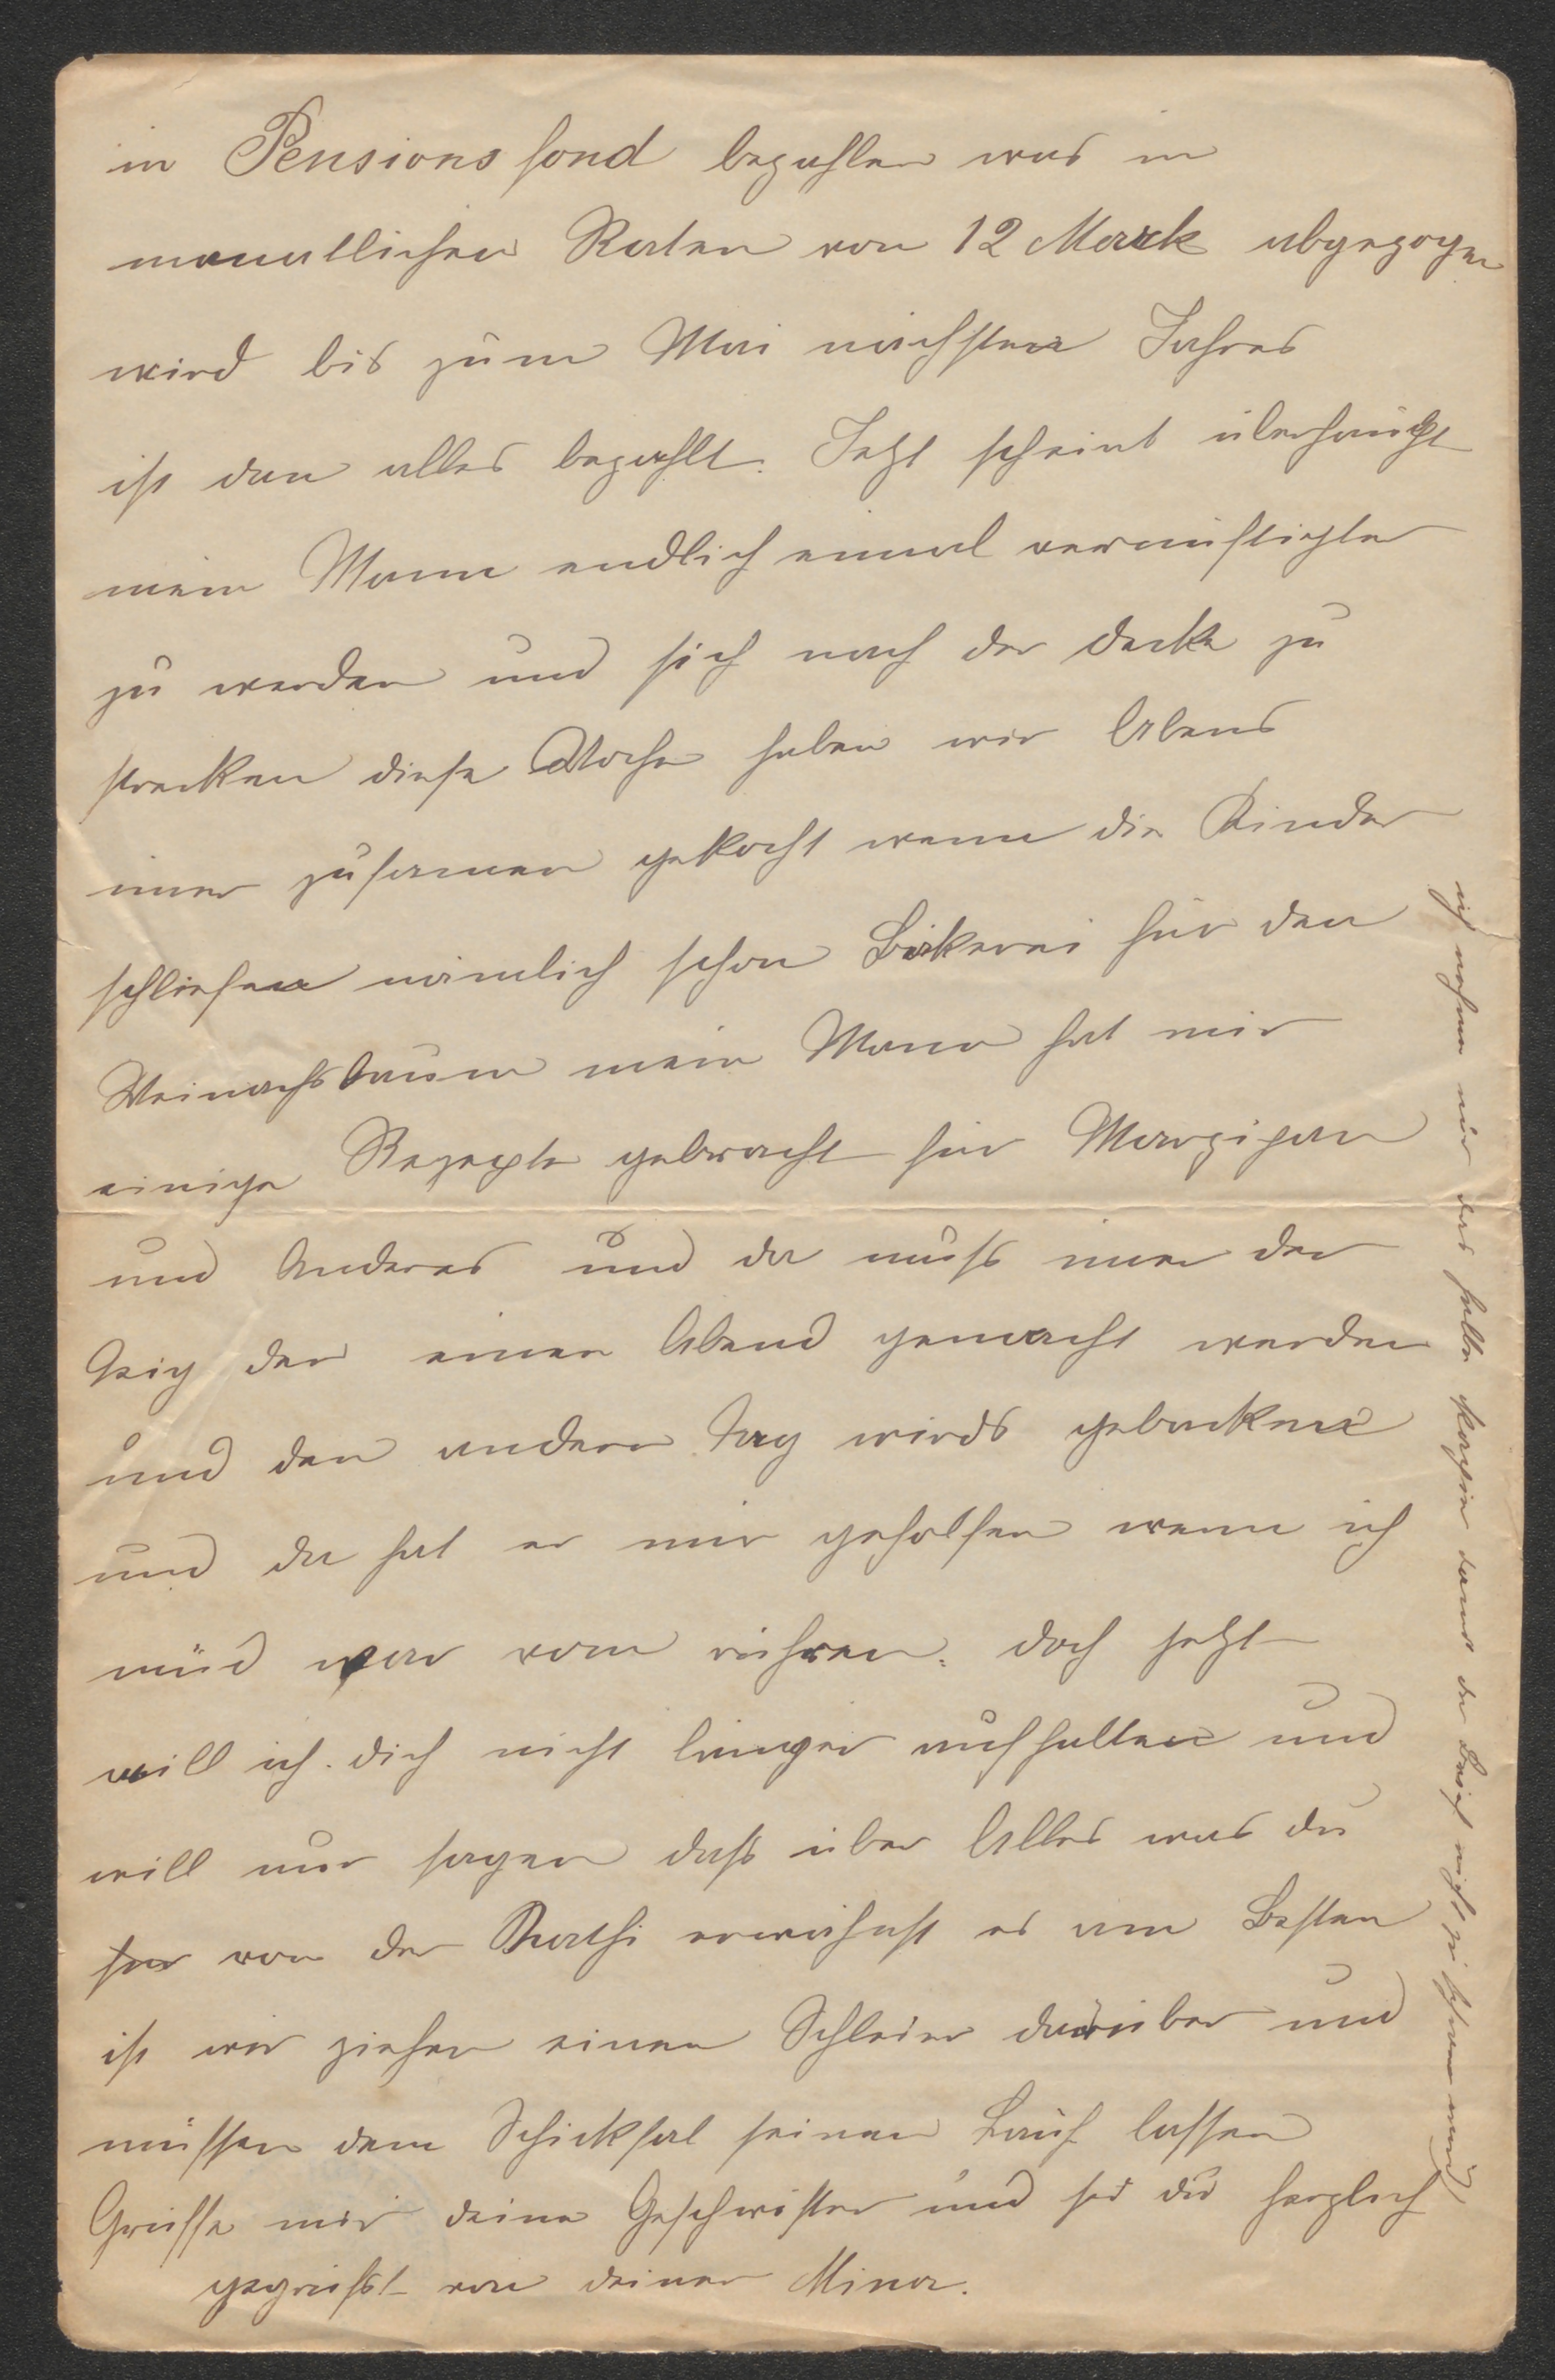 in Pensionsfond bezahlen was in
monatlichen Raten von 12 Mark abgezogen
wird bis zum Mai nächsten Jahres
ist dan alles bezahlt. Jetzt scheint überhaupt
mein Mann endlich einmal vernünftigter
zu werden und sich nach der decke zu
strecken diese Woche haben wir Abens
imer zusamen gekocht wenn die Kinder
schliefen nämlich schon Bäkerei für den
Weinachsbaum mein Mann hat mir
einige Rezepte gebracht für Marzipan
und Anderes und da muß imer der
Teig den einen Abend gemacht werden
und den andern Tag wirds gebacken
und da hat er mir geholfen wenn ich
müd war vom rühren. doch jetzt
will ich dich nicht länger aufhalten und
will nur sagen daß über Alles was du
von der Kathi erwähnst es am Besten
ist wir ziehen einen Schleier darüber und
müssen dem Schicksal seinen Lauf lassen
Grüsse mir deine Geschwister und sei du herzlich
gegrüßt von deiner Mina.
ich nahm nur das halbe damit der Brief nicht zu schwer wird